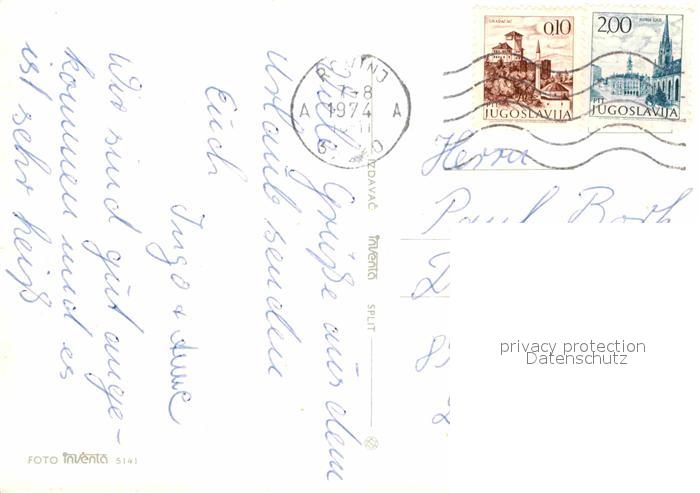 Gradačac
0,10
PTT
JUGOSLAVIJA
2,00
PTT
JUGOSLAVIJA
ROVINJ
-8
1974
A A
Liebe Grüße aus dem
Urlaub senden
Euch
Ingo + Anne
Wir sind gut ange-
kommen und es
ist sehr heiß
IZDAVAČ inventa SPLIT
FOTO inventa 5141
Herrn
Paul Roth
privacy protection
Datenschutz